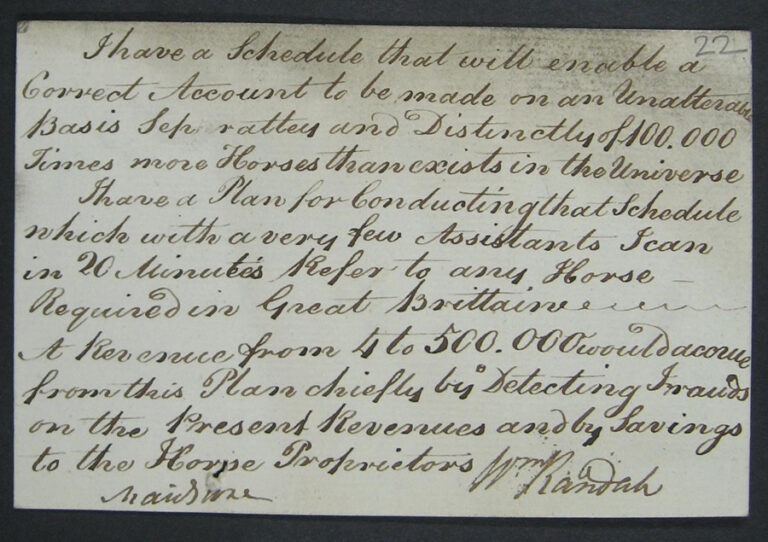 22
I have a Schedule that will enable a
Correct Account to be made on an Unalterable
Basis Seprattey and Distinctly of 100.000
Times more Horses than exists in the Universe
I have a Plan for Conducting that Schedule
which with a very few Assistants I can
in 20 Minutes Refer to any Horse –
Required in Great Brittain
A Revenue from 4 to 500.000 would accrue
from this Plan chiefly by Detecting Frauds
on the Present Revenues and by Savings
to the Horse Proprietors Wm Randall
Maidstone